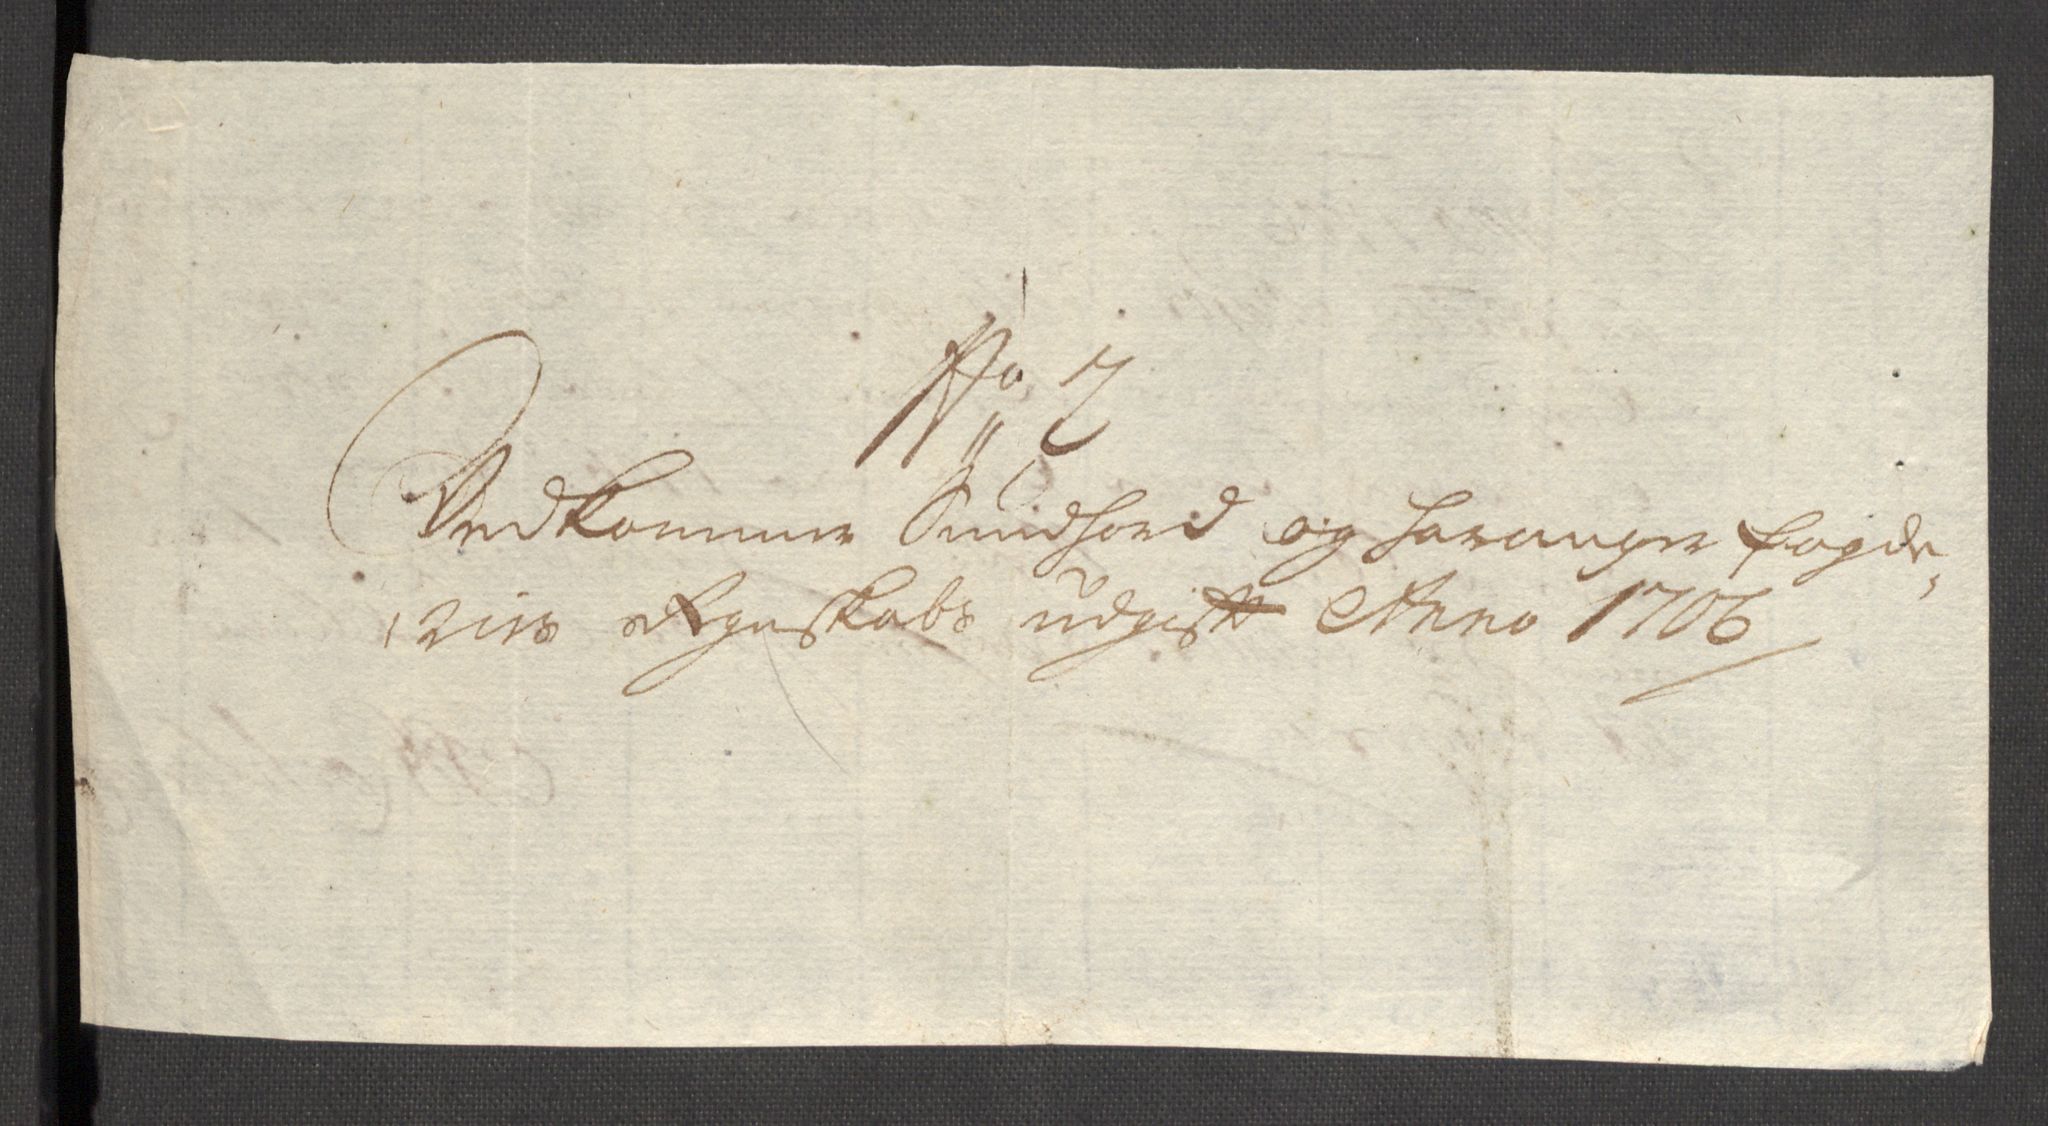 No 7
Vedkommer Sundhord og Haranger fogde,
riers Regnskabs udgift Anno 1706